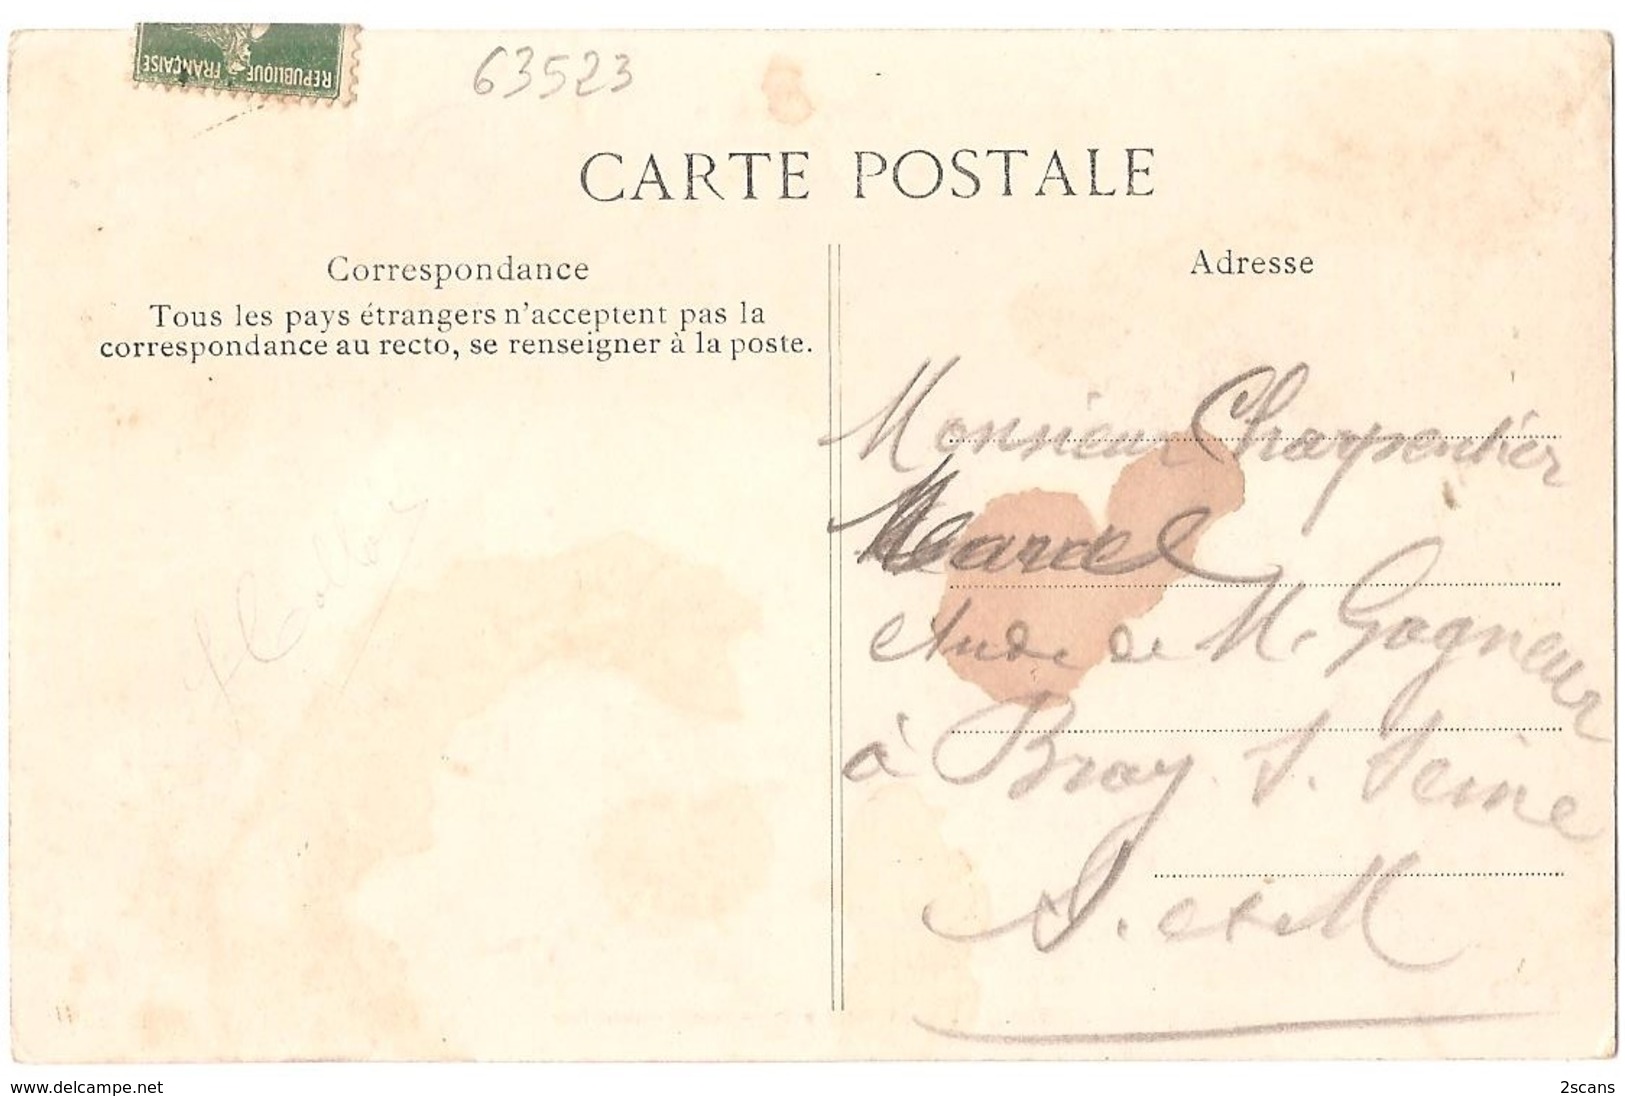 REPUBLIQUE FRANÇAISE
63523
CARTE POSTALE
Correspondance
Tous les pays étrangers n'acceptent pas la
correspondance au recto, se renseigner à la poste.
Adresse
Monsieur Charpentier
Marcel
Etude de M. Gagneux
à Bray S. Seine
S. et M
www.delcampe.net
2scans